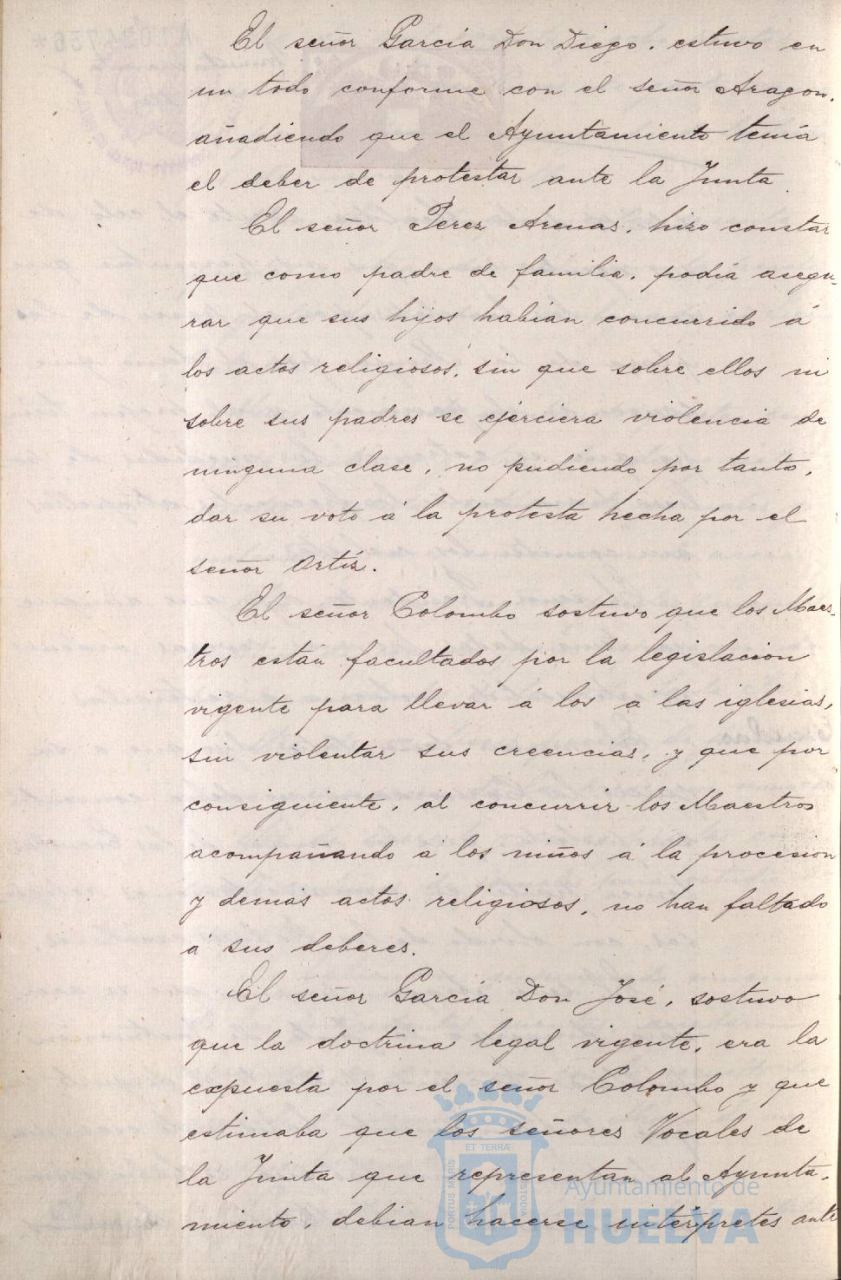 El señor García Don Diego. estuvo en
un todo conforme con el señor Aragon.
añadiendo que el Ayuntamiento tenía
el deber de protestar ante la Junta.
El señor Perez Arenas. hizo constar
que como padre de familia. podía asegu-
rar que sus hijos habían concurrido á
los actos religiosos. sin que sobre ellos ni
sobre sus padres se ejerciera violencia de
ninguna clase, no pudiendo por tanto,
dar su voto á la protesta hecha por el
señor Ortíz.
El señor Colombo sostuvo que los Maes-
tros están facultados por la legislacion
vigente para llevar á los a las iglesias,
sin violentar sus creencias, y que por
consiguiente, al concurrir los Maestros
acompañando á los niños á la procesion
y demás actos religiosos, no han faltado
á sus deberes.
El señor García Don José, sostuvo
que la doctrina legal vigente, era la
expuesta por el señor Colombo y que
estimaba que los señores Vocales de
la Junta que representan al Ayunta-
miento, debian hacerse intérpretes ante
ET TERRÆ
PORTUS MARIS
CUSTODIA
Ayuntamiento de
HUELVA